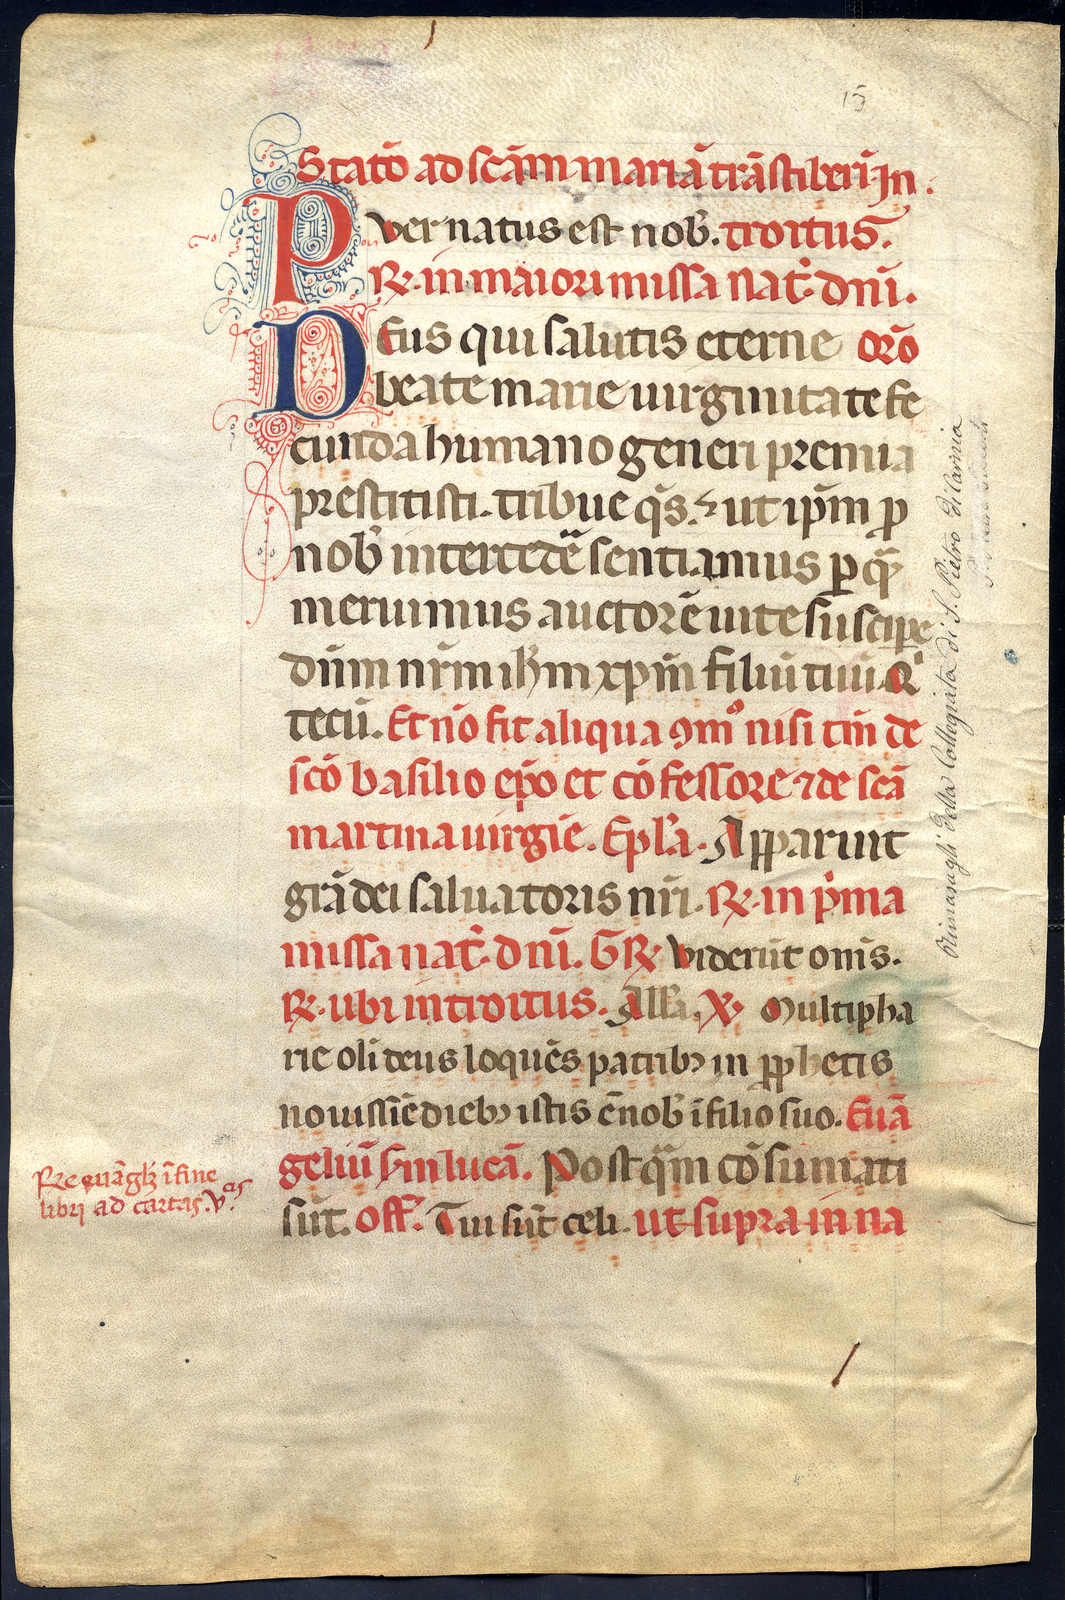 15
Statō ad scām mariā trāstiberī. In
Puer natus est nob̄. troitus.
R̷. in maiori missa nat̄. dn̄i.
Deus qui salutis eterne or̄o
beate marie uirginitate fe
cunda humano generi premia
prestitisti. tribue q̄s. ut ip̄m p
nob̄ intercedē sentiamus per quā
meruimus auctorē uite suscipe
dn̄m nr̄m ih̄m xp̄m filiū tuū Q
tecū. Et nō fit aliqua 9m° nisi tm̄ de
scō basilio ep̄o et cōfessore ⁊ de scā
martina uirgīe. Ep̄la. Apparuit
grā dei saluatoris nr̄i. R̷. in p̄ma
missa nat̄. dn̄i. GR̷ Viderūt om̄s.
R̷. ubi introitus. All̄a. V̷. Multipha
rie oli deus loquēs patrib⁊ in pphetis
nouissīe dieb⁊ istis ē nob̄ ī filio suo. Euā
geliū s̄m lucā. Postq̄m cōsumati
sūt. Off̄. Tui sūt celi. ut supra in na
R̷e euāgl̄z ī fine
libri ad cartas. V^as
Rimasugli della Collegiata di S. Pietro di Carinia